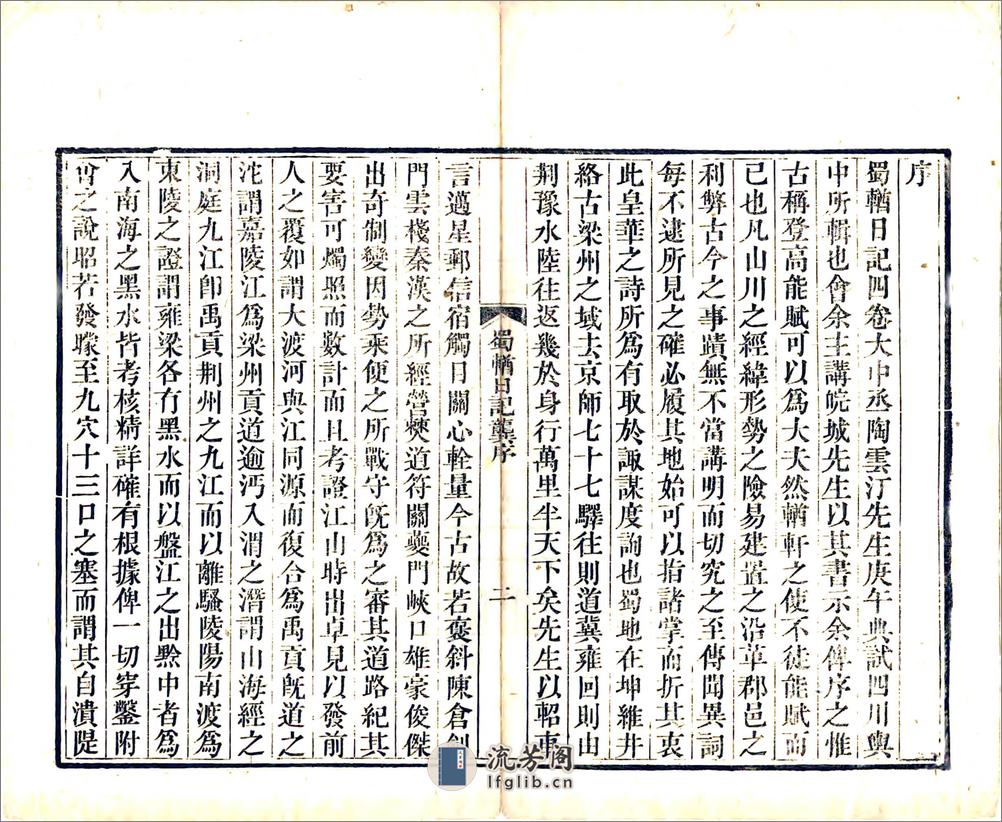 序
蜀輶日記四卷大中丞陶雲汀先生庚午典試四川輿
中所輯也會余主講皖城先生以其書示余俾序之惟
古稱登高能賦可以爲大夫然輶軒之使不徒能賦而
已也凡山川之經緯形勢之險易建置之沿革郡邑之
利弊古今之事蹟無不當講明而切究之至傳聞異詞
每不逮所見之確必履其地始可以指諸掌而折其衷
此皇華之詩所爲有取於諏謀度詢也蜀地在坤維井
絡古梁州之域去京師七十七驛往則道冀雍回則由
荆豫水陸往返幾於身行萬里半天下矣先生以軺車
蜀輶日記龔序
二
言邁星郵信宿觸目關心輇量今古故若褒斜陳倉劍
門雲棧秦漢之所經營僰道符關夔門峽口雄豪俊傑
出奇制變因勢乘便之所戰守旣爲之審其道路紀其
要害可燭照而數計而且考證江山時出卓見以發前
人之覆如謂大渡河與江同源而復合爲禹貢旣道之
沱謂嘉陵江爲梁州貢道逾沔入渭之潛謂山海經之
洞庭九江卽禹貢荆州之九江而以離騷陵陽南渡爲
東陵之證謂雍梁各有黑水而以盤江之出黔中者爲
入南海之黑水皆考核精詳確有根據俾一切穿鑿附
會之說昭若發矇至九穴十三口之塞而謂其自潰隄
流芳阁
lfglib.cn